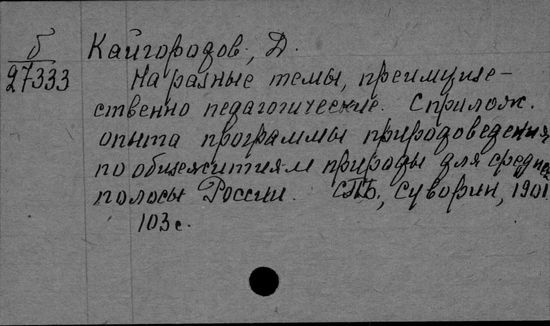 б
27333
Кайгородов, Д.
На разные темы, преимуще-
ственно педагогические. С прилож.
опыта программы природоведения
по общежитиям природы для средней
полосы России. СПб., Суворин, 1901
103 с.